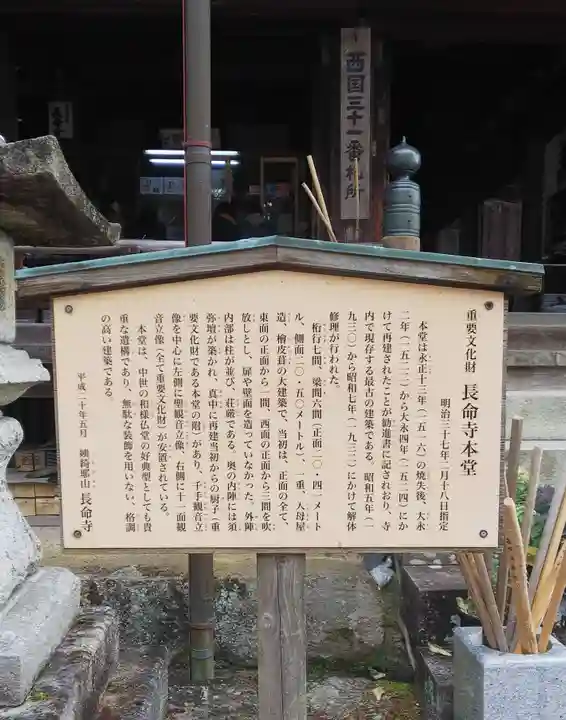 西国三十一番札所
重要文化財 長命寺本堂
明治三十七年二月十八日指定
本堂は永正十三年(一五一六)の焼失後、大永
二年(一五二二)から大永四年(一五二四)にか
けて再建されたことが勧進書に記されおり、寺
内で現存する最古の建築である。昭和五年(一
九三〇)から昭和七年(一九三二)にかけて解体
修理が行われた。
桁行七間、梁間六間(正面二〇・四一メート
ル、側面二〇・五〇メートル)、一重、入母屋
造、檜皮葺の大建築で、当初は、正面の全て、
東面の正面から一間、西面の正面から三間を吹
放しとし、扉や壁面を造っていなかった。外陣
内部は柱が並び、荘厳である。奥の内陣には須
弥壇が築かれ、真中に再建当初からの厨子(重
要文化財である本堂の附)があり、千手観音立
像を中心に左側に聖観音立像、右側に十一面観
音立像(全て重要文化財)が安置されている。
本堂は、中世の和様仏堂の好典型としても貴
重な遺構であり、無駄な装飾を用いない、格調
の高い建築である。
平成二十年五月 姨綺耶山 長命寺